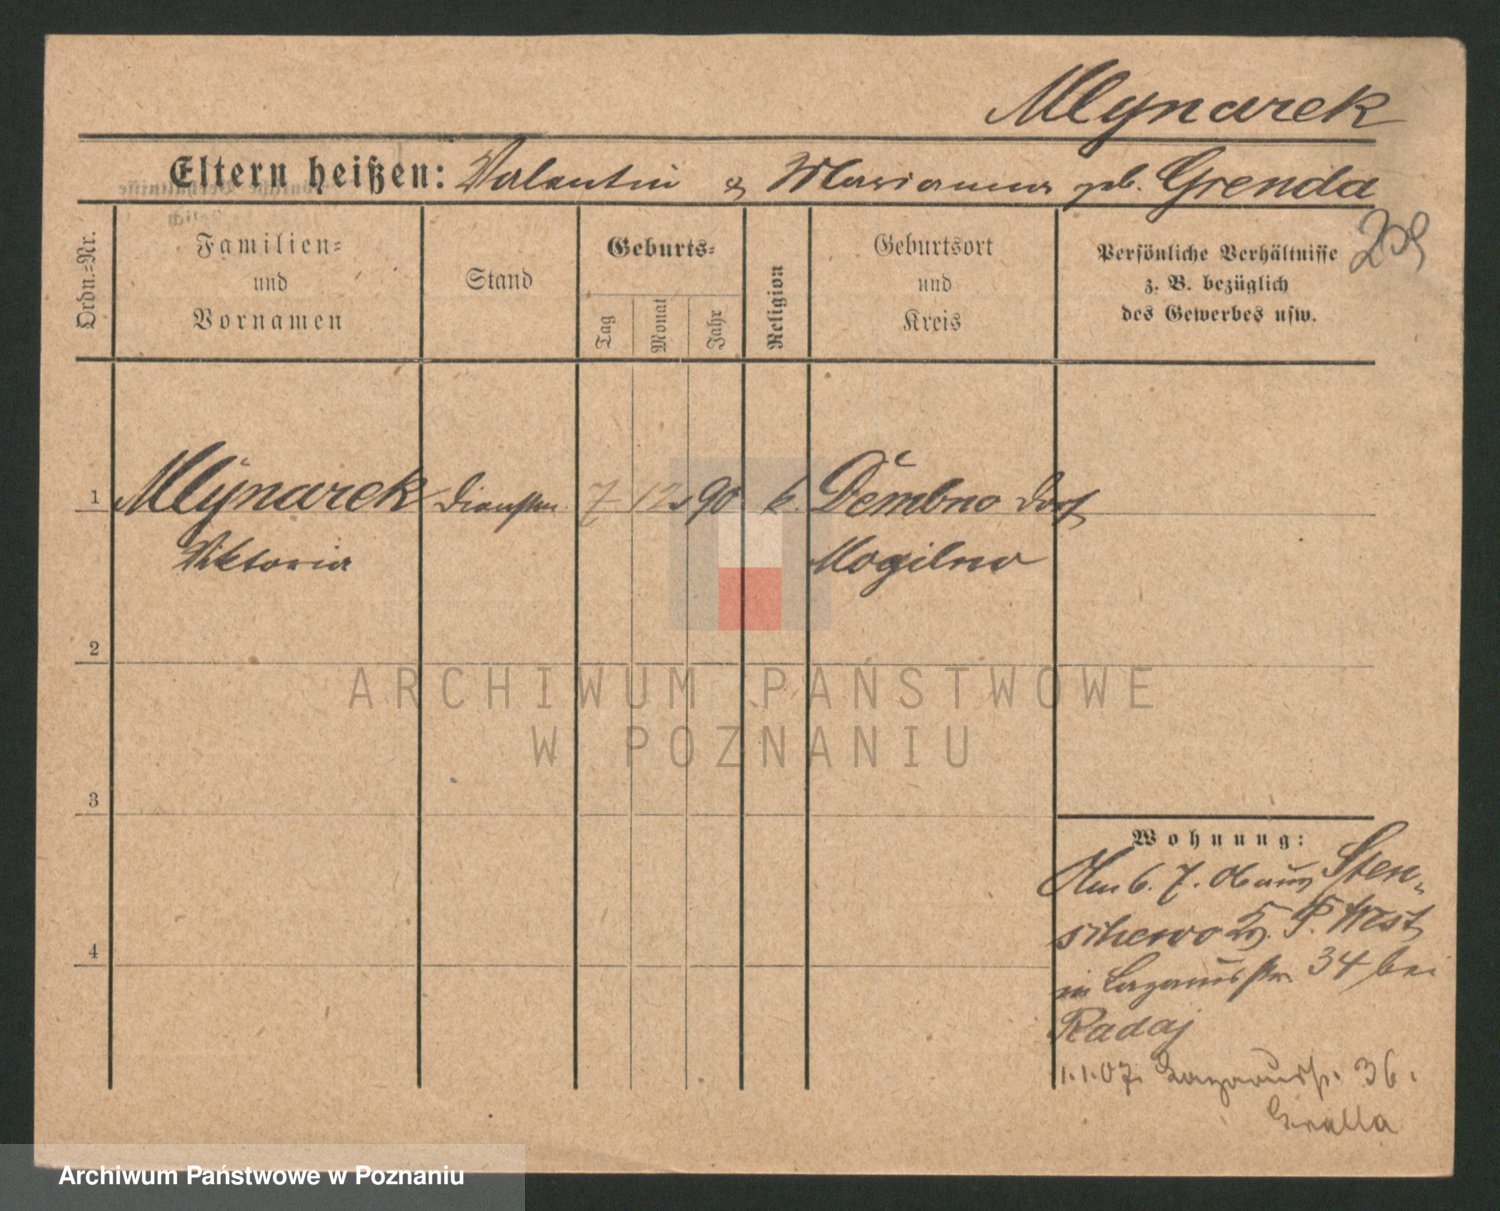 Mlynarek
Eltern heißen: Valentin & Marianna geb. Grenda
209
Ordn.=Nr.
Familien=
und
Vornamen
Stand
Geburts=
Tag
Monat
Jahr
Religion
Geburtsort
und
Kreis
Persönliche Verhältnisse
z. B. bezüglich
des Gewerbes usw.
1 Mlynarek Dienstm. 7 12 90 k. Dembno Dorf
Viktoria Mogilno
2
3
4
Wohnung:
Am 6. 7. 06 aus Sten-
schewo Kr. P. West
in Lazarusstr. 34 bei
Radaj
1.1.07. Lazarusstr. 36.
Gralla
ARCHIWUM PAŃSTWOWE
W POZNANIU
Archiwum Państwowe w Poznaniu